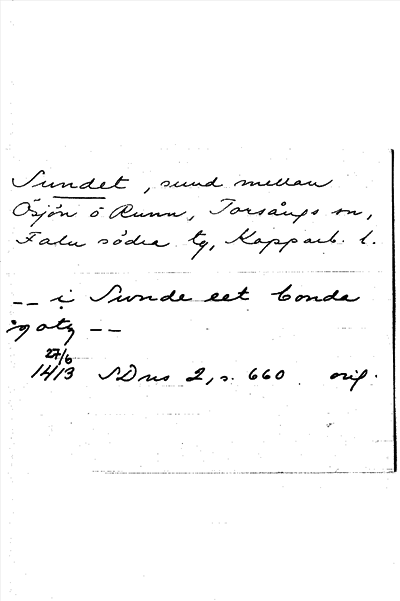 Sundet, sund mellan
Ösjön o Runn, Torsångs sn,
Falu södra tg, Kopparb. l.
-- i Sunde eet bonda
gotz --
27/6
1413 SDns 2, s. 660 orig.